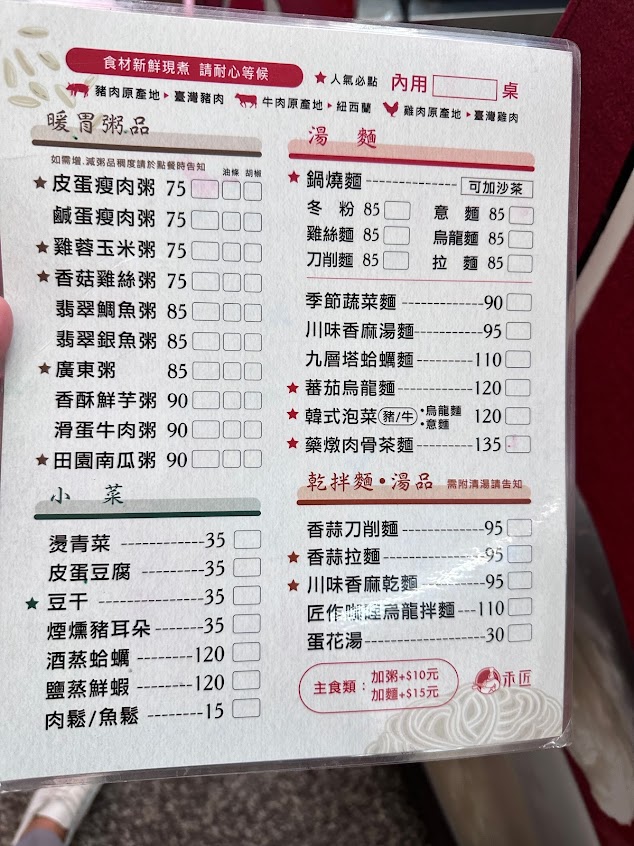 食材新鮮現煮 請耐心等候
★人氣必點 內用 桌
豬肉原產地▸臺灣豬肉 牛肉原產地▸紐西蘭 雞肉原產地▸臺灣雞肉
暖胃粥品
如需增、減粥品稠度請於點餐時告知 油條 胡椒
★皮蛋瘦肉粥 75
鹹蛋瘦肉粥 75
★雞蓉玉米粥 75
★香菇雞絲粥 75
翡翠鯛魚粥 85
翡翠銀魚粥 85
★廣東粥 85
香酥鮮芋粥 90
滑蛋牛肉粥 90
★田園南瓜粥 90
小菜
燙青菜 ------------35
皮蛋豆腐 ---------35
★豆干 ---------------35
煙燻豬耳朵 -------35
酒蒸蛤蠣 --------120
鹽蒸鮮蝦 --------120
肉鬆/魚鬆 --------15
湯麵
★鍋燒麵------------ 可加沙茶
冬粉 85 意麵 85
雞絲麵 85 烏龍麵 85
刀削麵 85 拉麵 85
季節蔬菜麵 ------------90
川味香麻湯麵----------95
九層塔蛤蠣麵---------110
★蕃茄烏龍麵-----------120
★韓式泡菜(豬/牛) •烏龍麵 •意麵 120
★藥燉肉骨茶麵--------135
乾拌麵•湯品 需附清湯請告知
香蒜刀削麵------------95
★香蒜拉麵---------------95
★川味香麻乾麵---------95
匠作咖哩烏龍拌麵---110
蛋花湯------------------30
主食類：加粥+$10元
加麵+$15元
禾匠